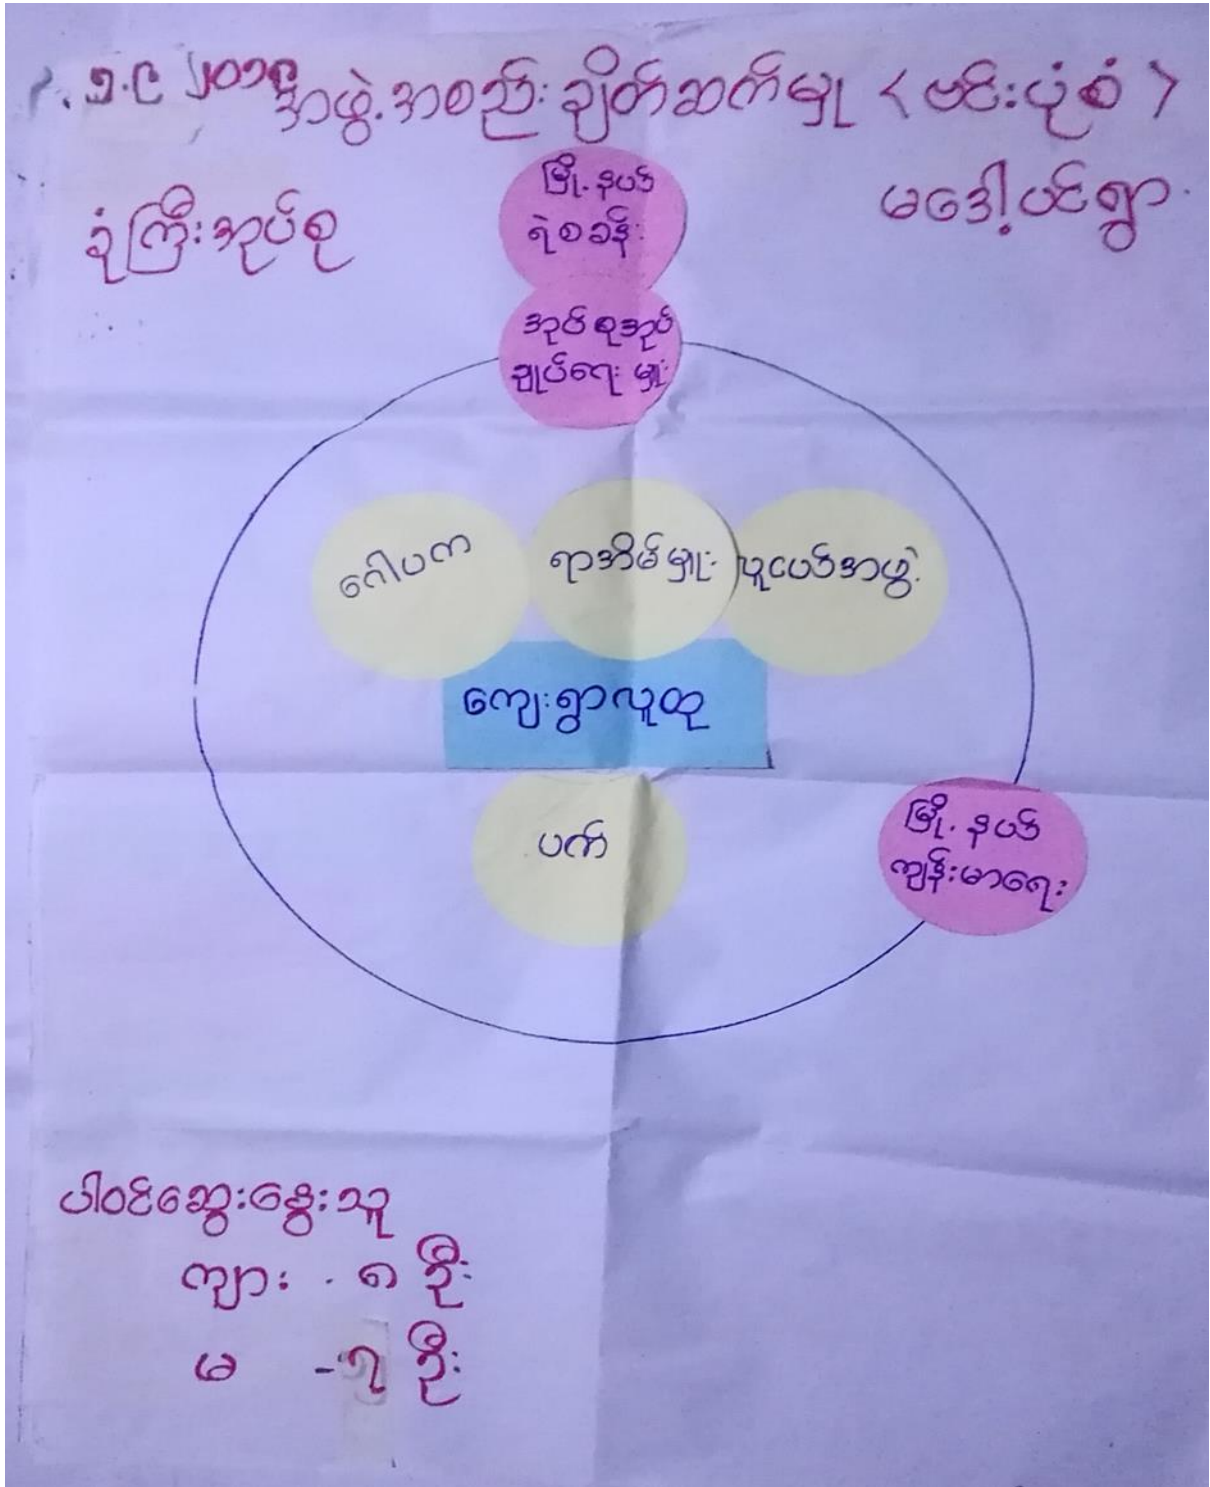 ၅.၉.၂၀၁၉ အဖွဲ့အစည်းချိတ်ဆက်မှု < ဗင်းပုံစံ >
ခုံကြီးအုပ်စု
မဒေါ့ပင်ရွာ
မြို့နယ်
ရဲစခန်း
အုပ်စုအုပ်
ချုပ်ရေးမှူး
ဂေါပက
ရာအိမ်မှူး
လူငယ်အဖွဲ့
ကျေးရွာလူထု
ပက်
မြို့နယ်
ကျန်းမာရေး
ပါဝင်ဆွေးနွေးသူ
ကျား - ၈ ဦး
မ - ၇ ဦး